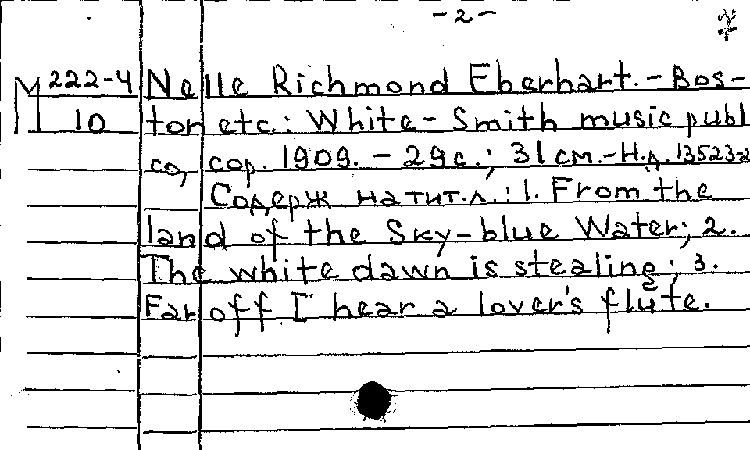 -2-
M 222-4 Nelle Richmond Eberhart. - Bos-
10 ton etc.: White-Smith music publ
co, cop. 1909. - 29с.; 31см. - Н.д. 13523-2
Содерж на тит.л.: 1. From the
land of the Sky-blue Water; 2.
The white dawn is stealing; 3.
Far off I hear a lover's flute.